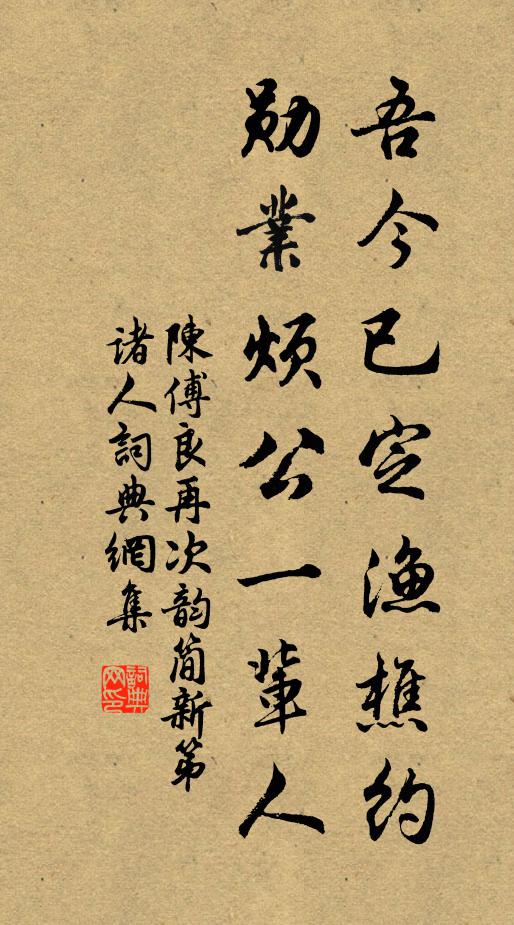 吾今已定漁樵約
勛業煩公一輩人
陳傅良再次韵簡新第
诸人詞典網集
詞典网印